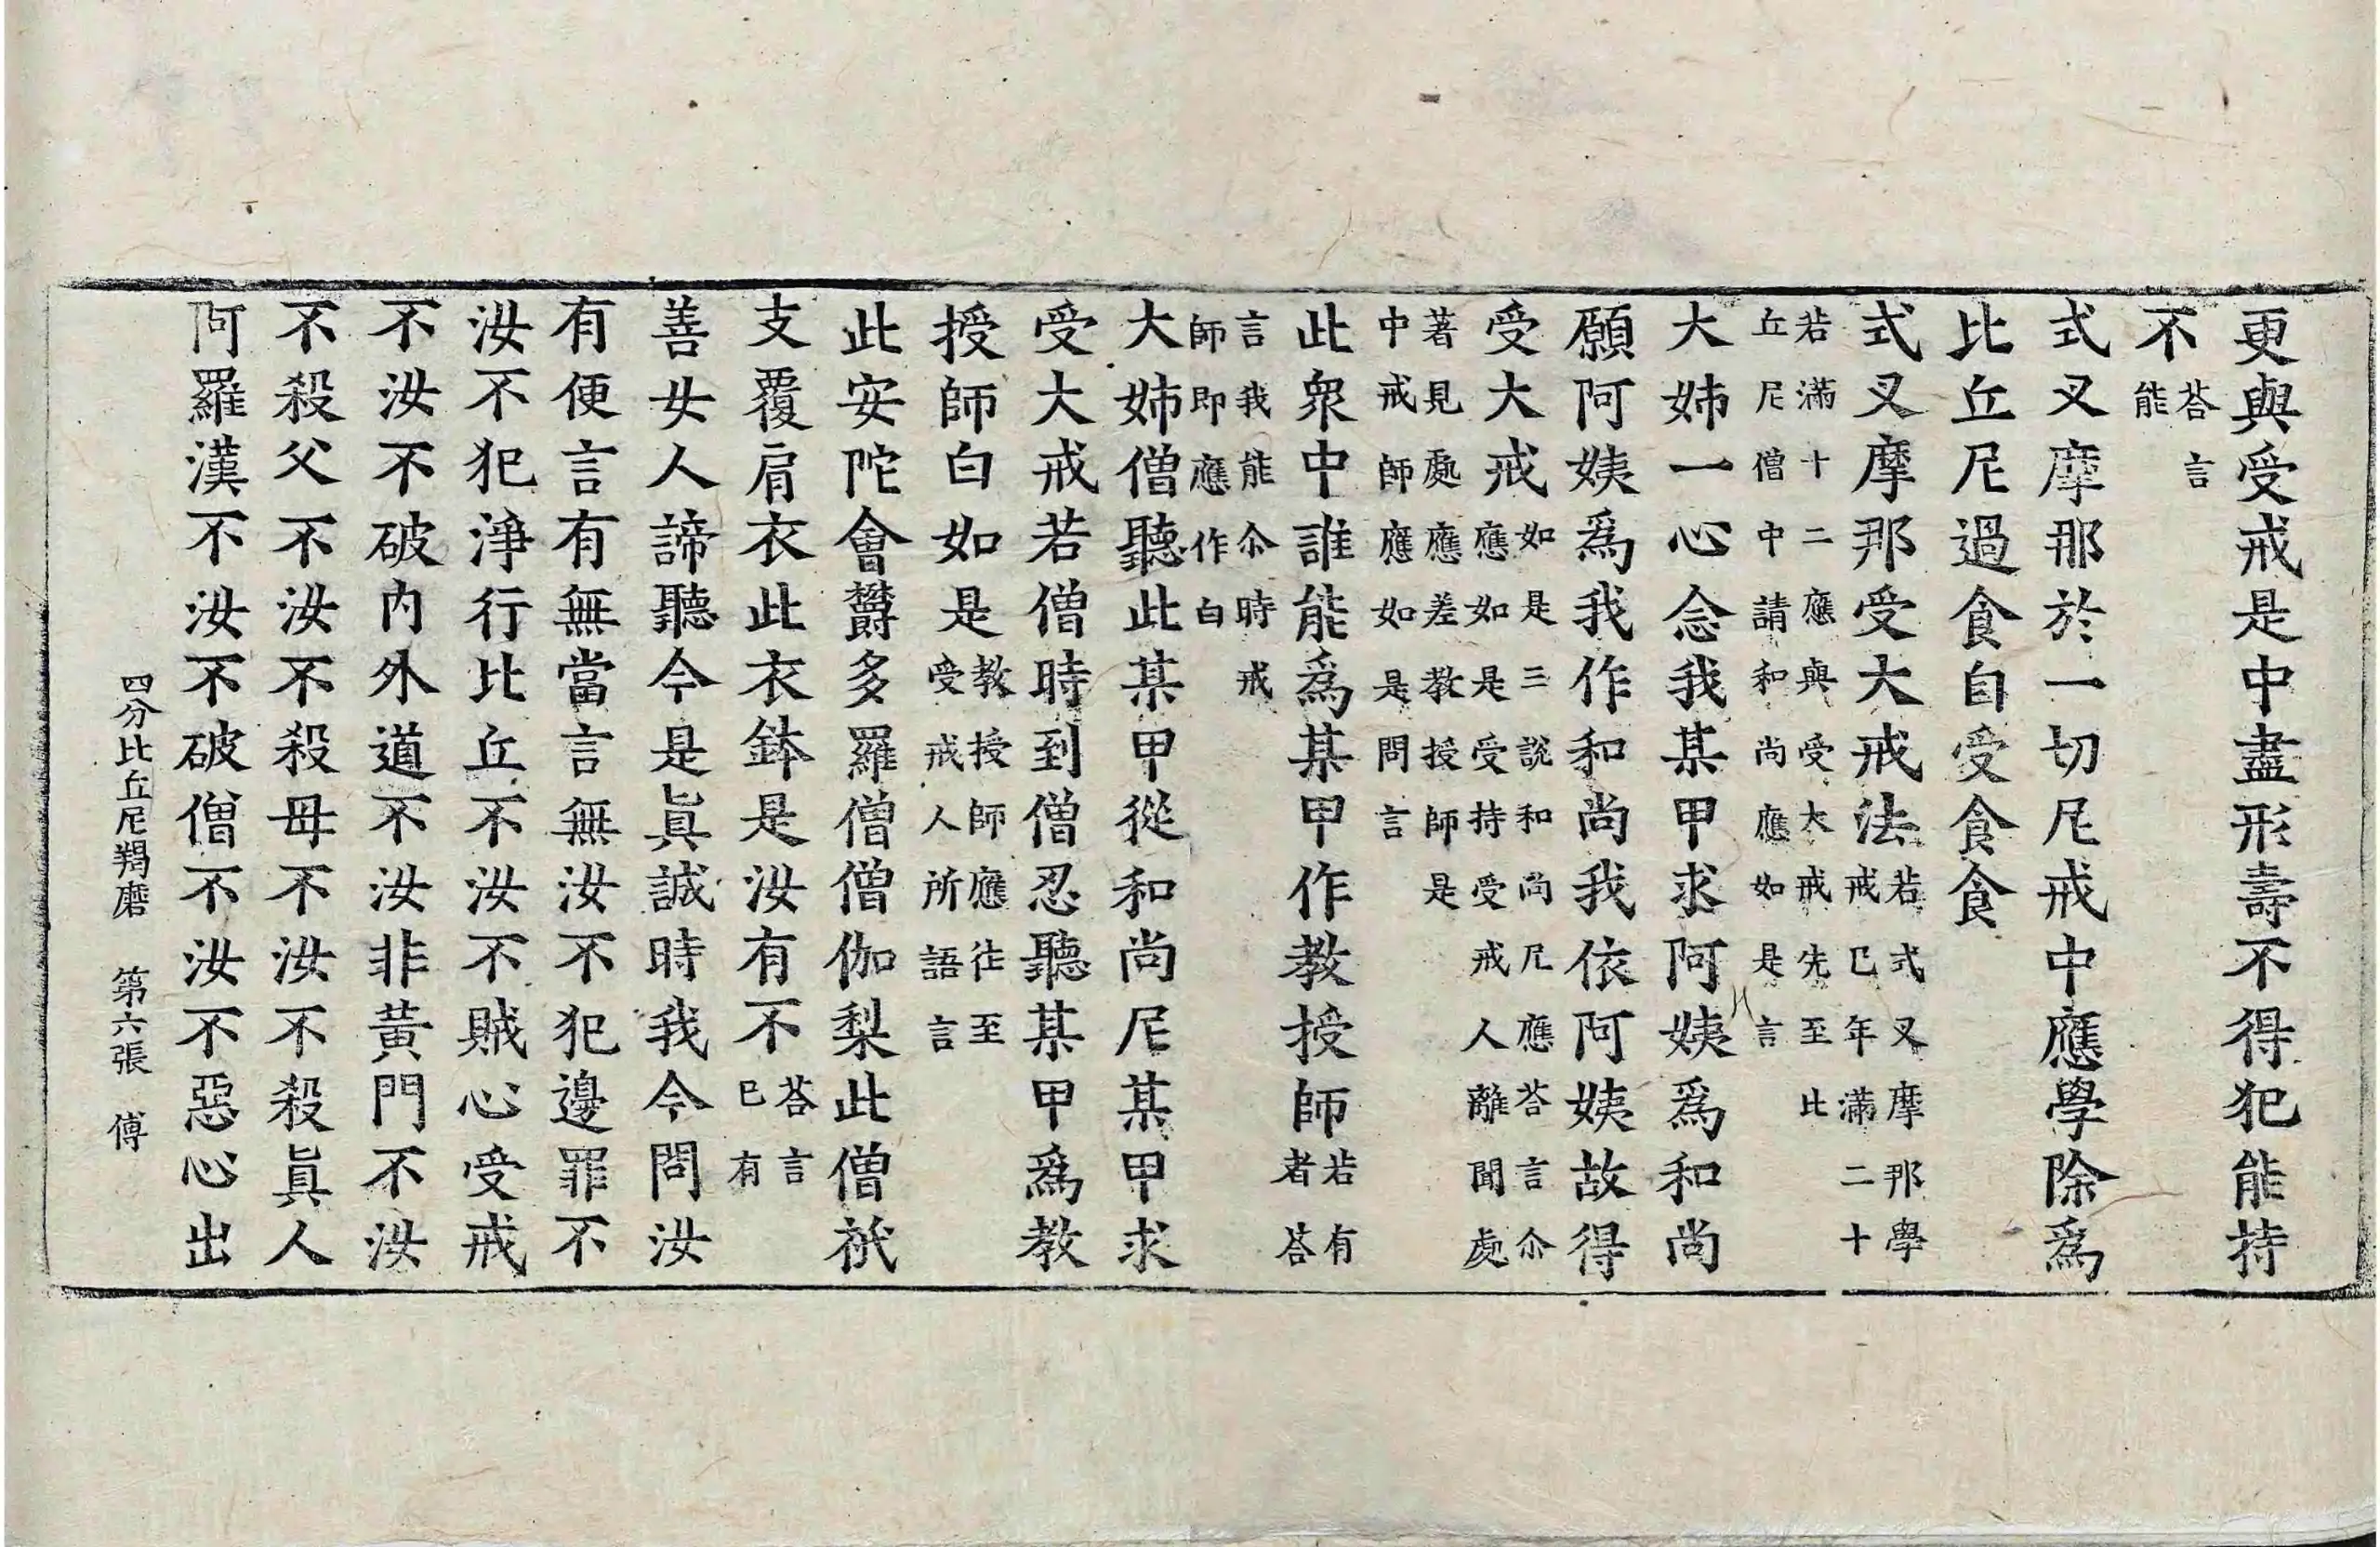 更與受戒是中盡形壽不得犯能持
不荅言能
式叉摩那於一切尼戒中應學除爲
比丘尼過食自受食食
式叉摩那受大戒法若式叉摩那學戒已年滿二十
若滿十二應與受大戒先至比丘尼僧中請和尚應如是言
大姊一心念我某甲求阿姨爲和尚
願阿姨爲我作和尚我依阿姨故得
受大戒如是三說和尚尼應荅言尒應如是受持受戒人離聞處
著見處應差教授師是中戒師應如是問言
此衆中誰能爲某甲作教授師若有者荅
言我能尒時戒師即應作白
大姊僧聽此某甲從和尚尼某甲求
受大戒若僧時到僧忍聽某甲爲教
授師白如是教授師應往至受戒人所語言
此安陀會欝多羅僧僧伽梨此僧祇
支覆肩衣此衣鉢是汝有不荅言已有
善女人諦聽今是眞誠時我今問汝
有便言有無當言無汝不犯邊罪不
汝不犯淨行比丘不汝不賊心受戒
不汝不破內外道不汝非黃門不汝
不殺父不汝不殺母不汝不殺眞人
阿羅漢不汝不破僧不汝不惡心出
四分比丘尼羯磨 第六張 傅